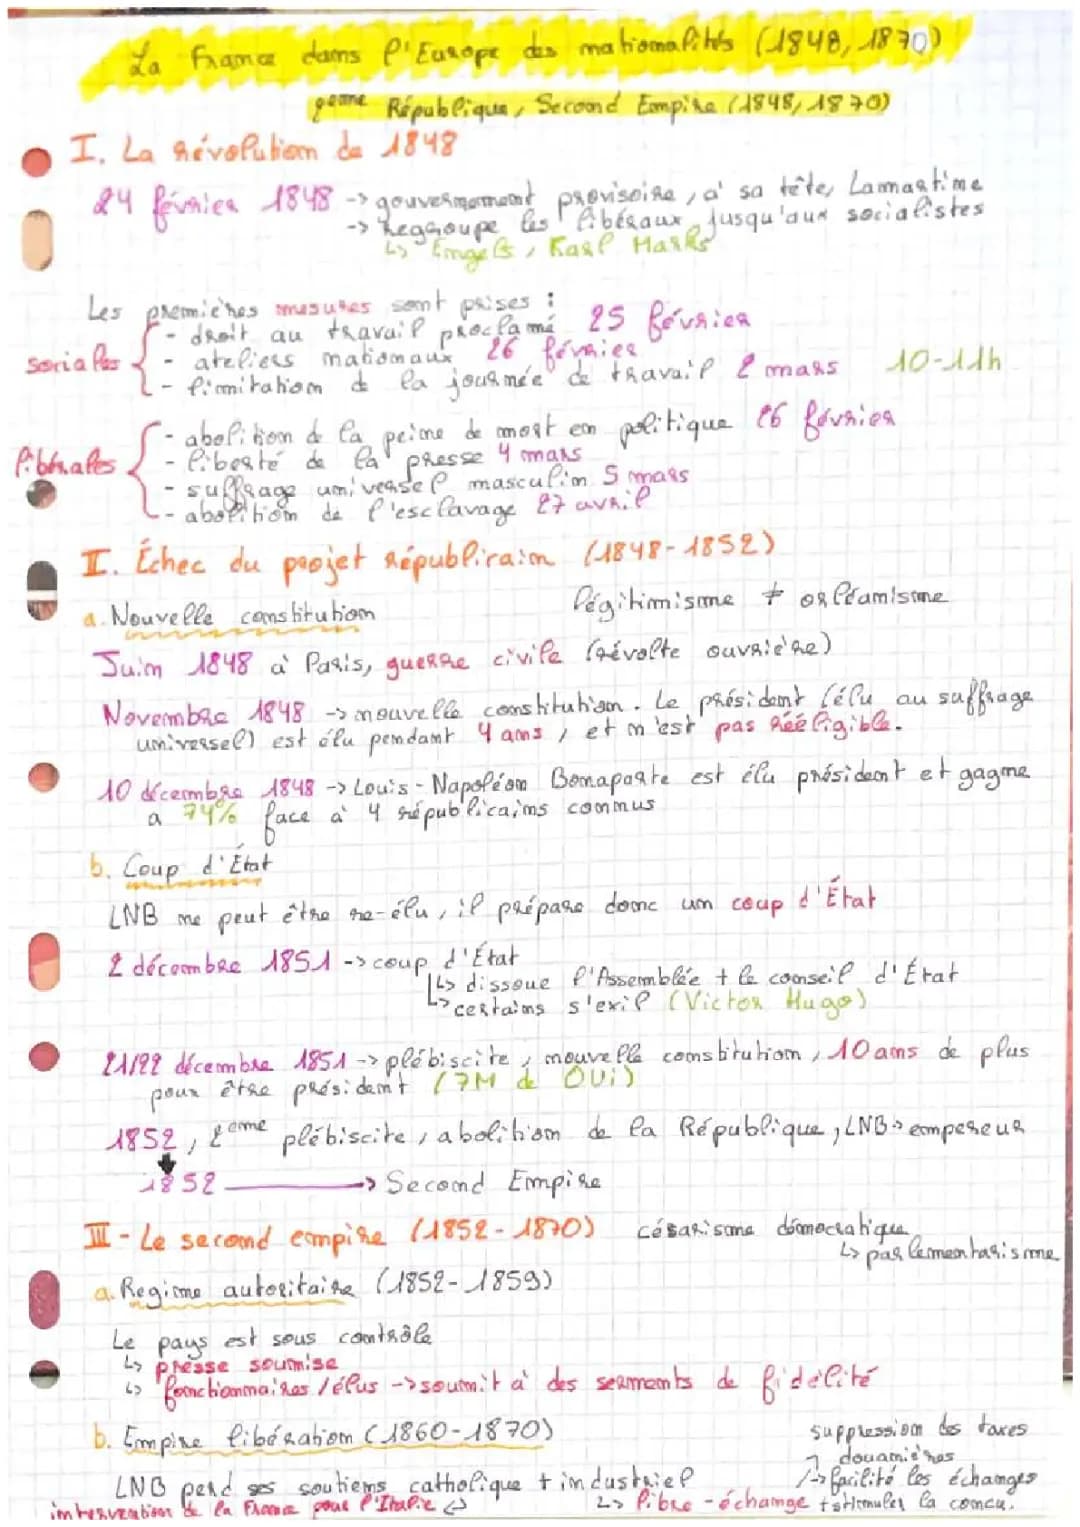 La France dans l'Europe des nationalités (1848, 1870)
2eme République, Second Empire (1848, 1870)
I. La révolution de 1848
24 février 1848 -> gouvernement provisoire, à sa tête, Lamartine
-> Reggroupe les libéraux jusqu'aux socialistes
↳ Engels, Karl Marks
Les premières mesures sont prises :
sociales
- droit au travail proclamé 25 février
- ateliers nationaux 26 février
- limitation de la journée de travail 2 mars 10-11h
libérales
- abolition de la peine de mort en politique 26 février
- liberté de la presse 4 mars
- suffrage universel masculin 5 mars
- abolition de l'esclavage 27 avril
II. Échec du projet républicain (1848-1852)
a. Nouvelle constitution légitimisme ≠ orléamisme
Juin 1848 à Paris, guerre civile (révolte ouvrière)
Novembre 1848 -> nouvelle constitution. Le président (élu au suffrage
universel) est élu pendant 4 ans, et n'est pas rééligible.
10 décembre 1848 -> Louis-Napoléon Bonaparte est élu président et gagne
a 74% face à 4 républicains connus
b. Coup d'État
LNB ne peut être re-élu, il prépare donc un coup d'État
2 décembre 1851 -> coup d'État
↳ dissoue l'Assemblée + le conseil d'État
↳ certains s'exil (Victor Hugo)
21/22 décembre 1851 -> plébiscite, nouvelle constitution, 10 ans de plus
pour être président (7M de OUi)
1852, 2eme plébiscite, abolition de la République, LNB -> empereur
1852 -> Second Empire
III - Le second empire (1852-1870) césarisme démocratique
↳ parlementarisme
a. Regime autoritaire (1852-1859)
Le pays est sous contrôle
↳ presse soumise
↳ fonctionnaires / élus -> soumit à des serments de fidélité
b. Empire libération (1860-1870) suppression des taxes
douanières
LNB perd ses soutiens catholique + industriel -> facilité les échanges
intervention de la France pour l'Italie ↳ libre-échange + stimuler la concu.